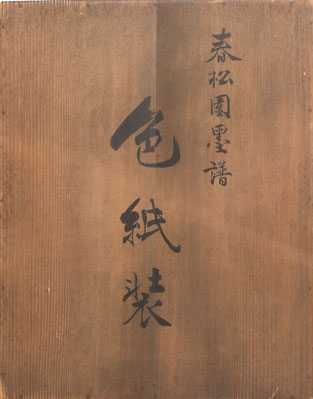 春松園墨譜
色紙装